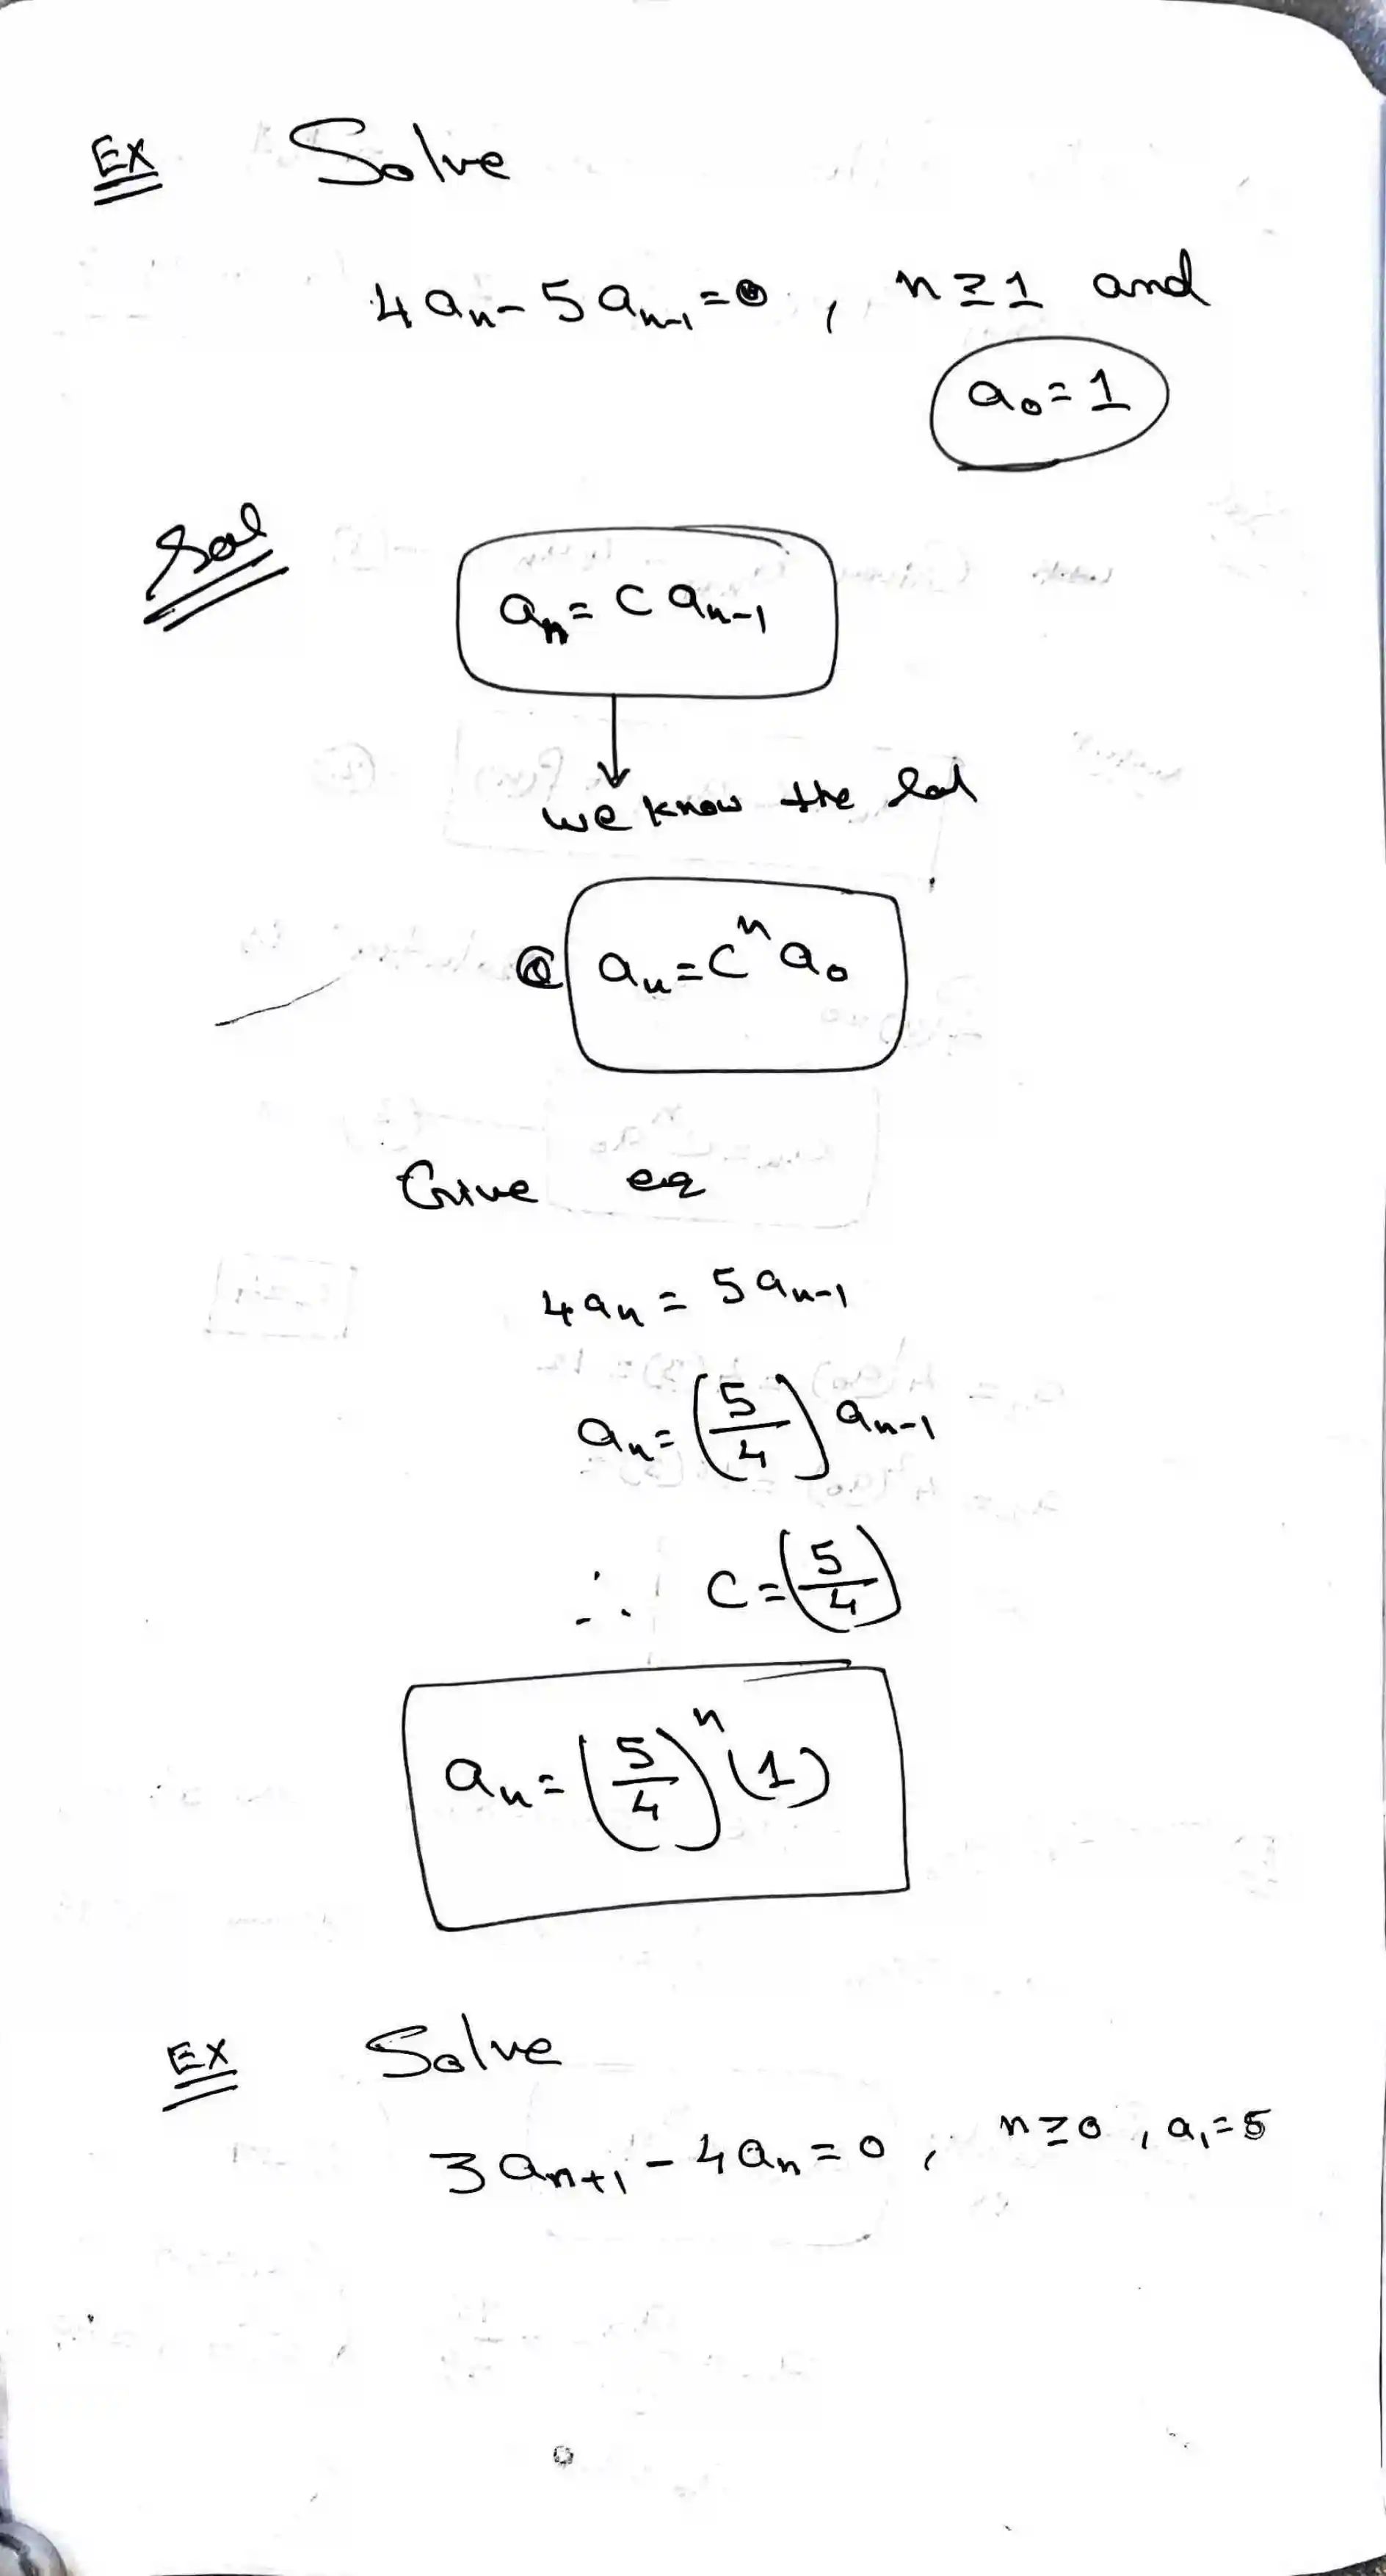 Ex Solve
4aₙ - 5aₙ₋₁ = 0 , n ≥ 1 and
a₀ = 1
Sol
aₙ = C aₙ₋₁
we know the Sol
aₙ = Cⁿ a₀
Give eq
4aₙ = 5aₙ₋₁
aₙ = (5/4) aₙ₋₁
∴ C = (5/4)
aₙ = (5/4)ⁿ (1)
Ex Solve
3aₙ₊₁ - 4aₙ = 0 , n ≥ 0 , a₁ = 5